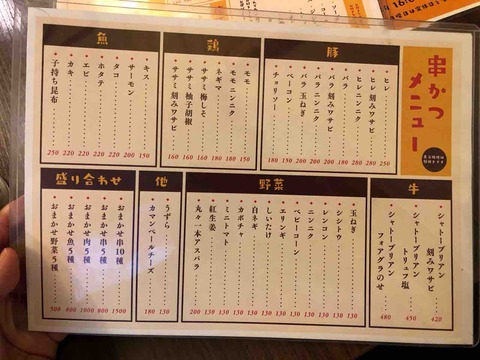 串かつメニュー
豚
ヒレ 250
ヒレ刻みワサビ 280
ヒレニンニク 280
バラ 180
バラ刻みワサビ 200
バラニンニク 200
バラ玉ねぎ 200
ベーコン 180
チョリソー 180
鶏
モモ 150
モモニンニク 180
ネギマ 180
ササミ梅しそ 160
ササミ柚子胡椒 160
ササミ刻みワサビ 160
魚
キス 150
サーモン 200
タコ 220
ホタテ 220
エビ 220
カキ 220
子持ち昆布 250
牛
シャトーブリアン
刻みワサビ 420
シャトーブリアン
トリュフ塩 450
シャトーブリアン
フォアグラのせ 480
野菜
玉ねぎ 130
シシトウ 130
レンコン 130
ニンニク 130
ベビーコーン 130
エリンギ 130
しいたけ 130
白ネギ 130
カボチャ 130
ミニトマト 130
紅生姜 150
丸々一本アスパラ 200
他
うずら 130
カマンベールチーズ 180
盛り合わせ
おまかせ串10種 1500
おまかせ串5種 800
おまかせ肉5種 1000
おまかせ魚5種 800
おまかせ野菜5種 500